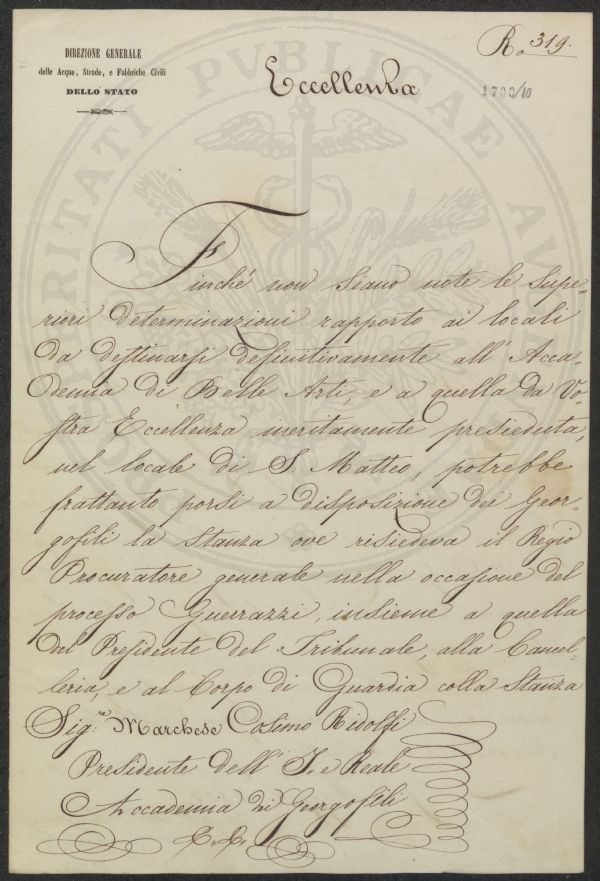 DIREZIONE GENERALE
delle Acque, Strade, e Fabbriche Civili
DELLO STATO
Ro 319.
Eccellenza
1793/10
Finché non siano note le supe-
riori determinazioni rapporto ai locali
da destinarsi definitivamente all'Acca-
demia di Belle Arti, e a quella da Vo-
stra Eccellenza meritamente presieduta,
nel locale di S. Matteo, potrebbe
frattanto porsi a disposizione dei Geor-
gofili la stanza ove risiedeva il Regio
Procuratore generale nella occasione del
processo Guerrazzi, insieme a quella
del Presidente del Tribunale, alla Cancel-
leria, e al Corpo di Guardia colla Stanza
Sig.re Marchese Cosimo Ridolfi
Presidente dell'I. e Reale
Accademia dei Georgofili